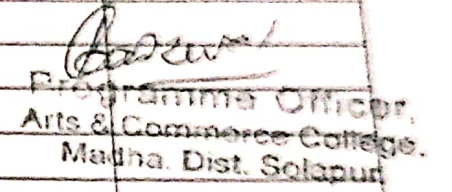 Programme Officer,
Arts & Commerce College,
Madha. Dist. Solapur